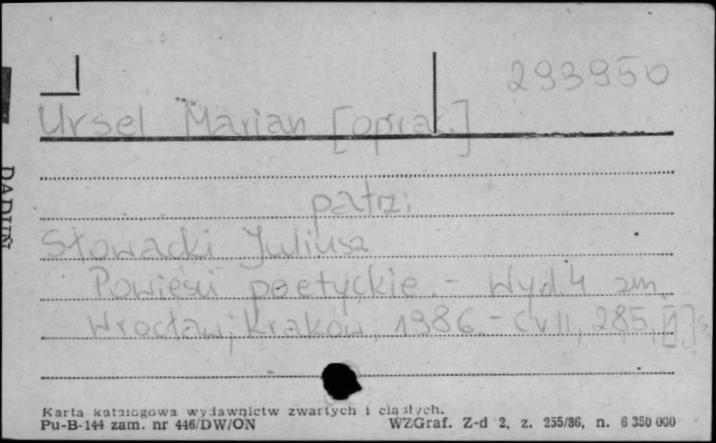 293950
Ursel Marian [oprac.]
patrz:
Słowacki Juliusz
Powieści poetyckie. - Wyd. 4 zm.
Wrocław; Kraków, 1986. - CVII, 285, [1] s.
DADUŃ
Karta katalogowa wydawnictw zwartych i ciągłych.
Pu-B-144 zam. nr 446/DW/ON WZGraf. Z-d 2, z. 255/86, n. 6 350 000